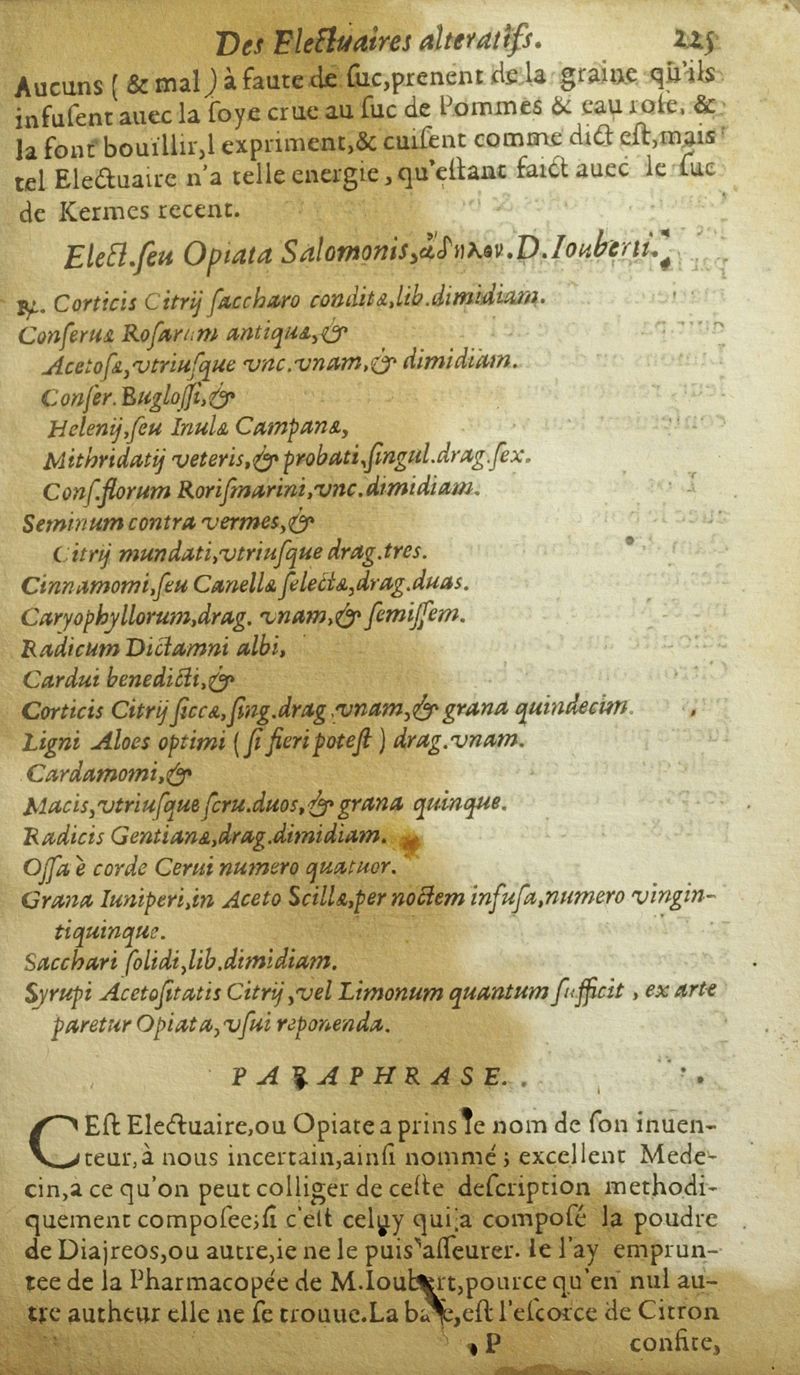 Des Electuaires alteratifs. 225
Aucuns ( & mal ) à faute de suc,prenent de la graine qu'ils
infusent auec la soye crue au suc de Pommes & eau rose, &
la font bouillir,l expriment,& cuisent comme dict est,mais
tel Electuaire n'a telle energie, qu'estant faict auec le suc
de Kermes recent.
Elect.seu Opiata Salomonis,ἄδηλον.D.Iouberti.
℞. Corticis Citrij saccharo conditæ,lib.dimidiam.
Conseruæ Rosarum antiquæ,&
Acetosæ,vtriusque vnc.vnam,& dimidiam.
Conser. Buglossi,&
Helenij,seu Inulæ Campanæ,
Mithridatij veteris,& probati,singul.drag.sex.
Cons.florum Rorismarini,vnc.dimidiam.
Seminum contra vermes,&
Citrij mundati,vtriusque drag.tres.
Cinnamomi,seu Canellæ selectæ,drag.duas.
Caryophyllorum,drag. vnam,& semissem.
Radicum Dictamni albi,
Cardui benedicti,&
Corticis Citrij siccæ,sing.drag.vnam,& grana quindecim.
Ligni Aloes optimi ( si fieri potest ) drag.vnam.
Cardamomi,&
Macis,vtriusque scru.duos,& grana quinque.
Radicis Gentianæ,drag.dimidiam.
Ossa è corde Cerui numero quatuor.
Grana Iuniperi,in Aceto Scillæ,per noctem infusa,numero vingin-
tiquinque.
Sacchari solidi,lib.dimidiam.
Syrupi Acetositatis Citrij ,vel Limonum quantum sufficit , ex arte
paretur Opiata, vsui reponenda.
PARAPHRASE.
CEst Electuaire,ou Opiate a prins le nom de son inuen-
teur,à nous incertain,ainsi nommé ; excellent Mede-
cin,a ce qu'on peut colliger de ceste description methodi-
quement composee;si c'est celuy qui a composé la poudre
de Diaireos,ou autre,ie ne le puis asseurer. ie l'ay emprun-
tee de la Pharmacopée de M.Ioubert,pource qu'en nul au-
tre autheur elle ne se trouue.La base,est l'escorce de Citron
P confite,